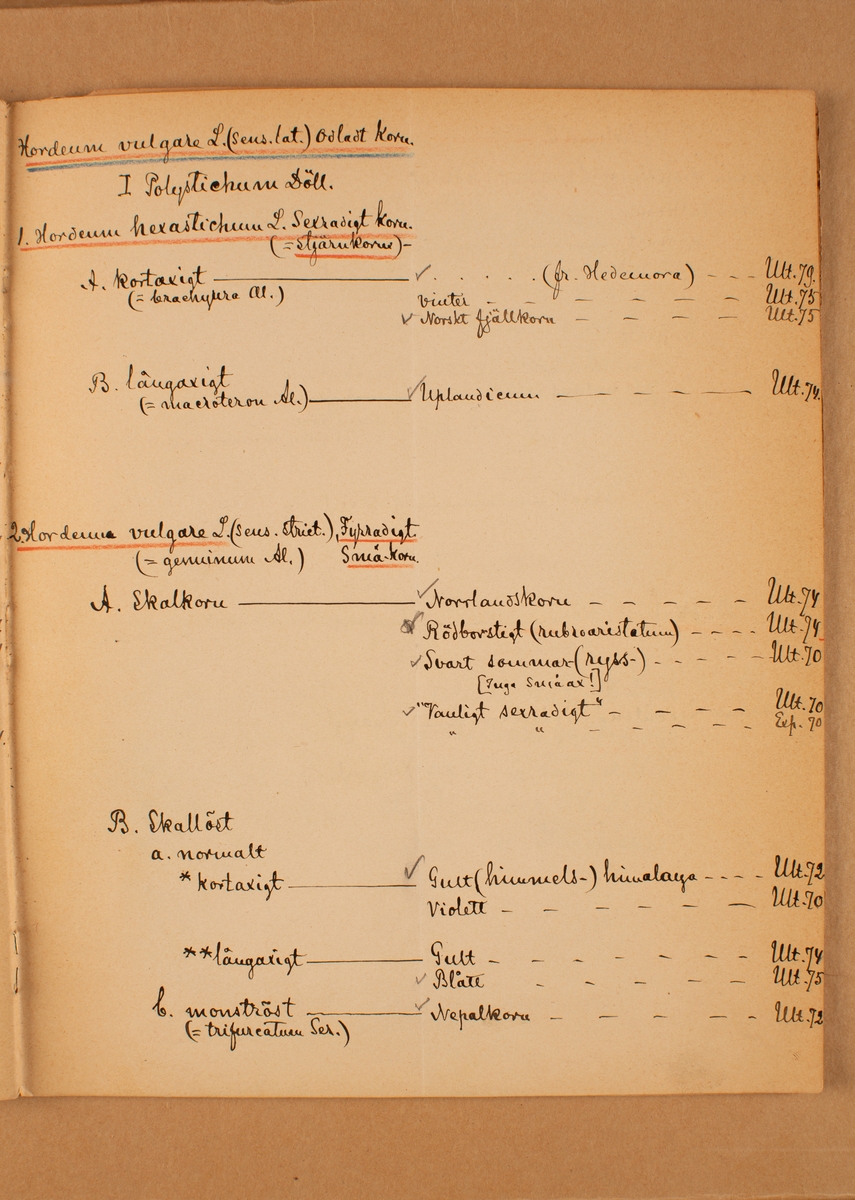 Hordeum vulgare L. (sens. lat.) Odladt Korn.
I Polystichum Döll.
1. Hordeum hexastichum L. Sexradigt korn.
(= stjärnkorn) -
A. kortaxigt ——— ✓ . . . . (fr. Hedemora) - - - Ult. 79.
(= brachyura Al.) vinter - - - - Ult. 75
✓ Norskt fjällkorn - - - - Ult. 75
B. långaxigt
(= macróteron Al.) ——— ✓ Uplandicum - - - - Ult. 74.
2. Hordeum vulgare L. (sens. strict.), Fyrradigt.
(= geminum Al.) Små-korn.
A. Skalkorn ——— ✓ Norrlandskorn - - - - Ult. 74
✓ Rödborstigt (rubroaristatum) - - - - Ult. 74.
✓ Svart sommar- (ryss-) - - - - Ult. 70
[Inga Småax!]
✓ "Vanligt sexradigt" - - - - Ult. 70
" " - - - - Exp. 70
B. Skallöst
a. normalt
* kortaxigt ——— ✓ Gult (himmels-) himalaya - - - - Ult. 72
Violett - - - - Ult. 70
** långaxigt ——— Gult - - - - Ult. 74
✓ Blått - - - - Ult. 75
b. monströst ——— ✓ Nepalkorn - - - - Ult. 72
(= trifurcatum Ser.)